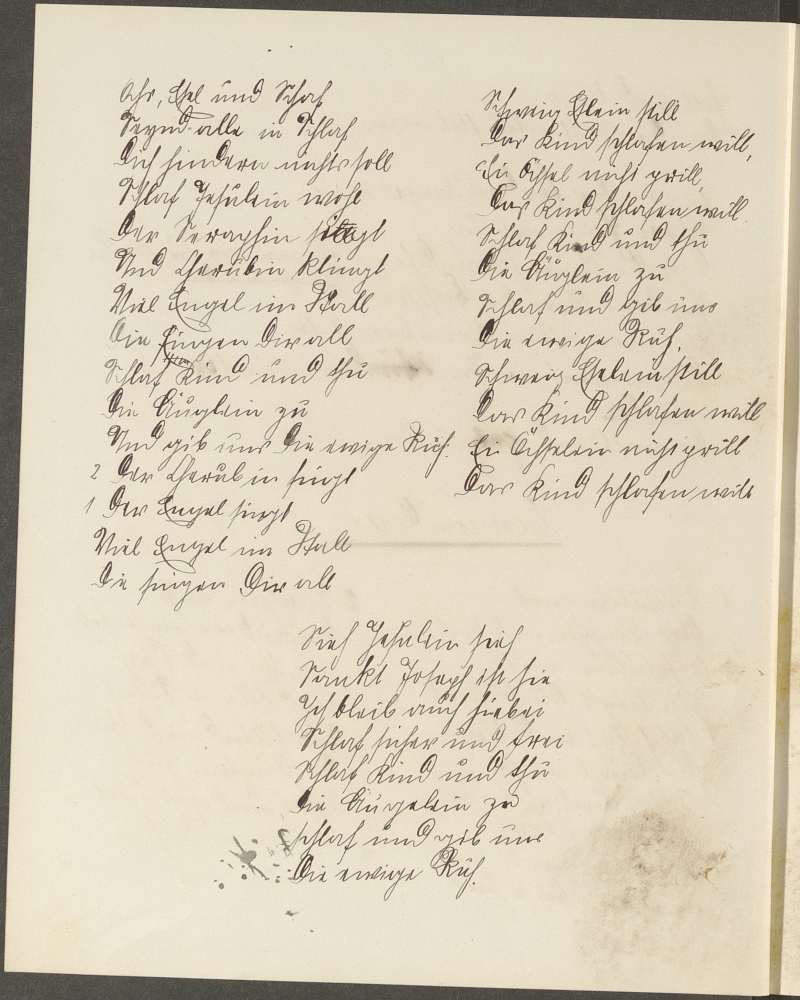 Ochs, Esel und Schaf
Seynd alle in Schlaf
Dich hindern nichts soll
Schlaf Jesulein wohl
Der Seraphin singt
Und Cherubin klingt
Viel Engel im Stall
Die singen Dir all
Schlaf Kind und thu
Die Äuglein zu
Und gib uns die ewige Ruh.
2 Der Cherubin singt
1 Der Engel singt
Viel Engel im Stall
Die singen Dir all
Schweig Eslein still
Das Kind schlafen will,
Ei Öchsel nicht prill,
Das Kind schlafen will.
Schlaf Kind und thu
Die Äuglein zu
Schlaf und gib uns
Die ewige Ruh.
Schweig Eselein still
Das Kind schlafen will
Ei Öchselein nicht prill
Das Kind schlafen will
Sieh Jesulein sieh
Sankt Joseph ist hie
Ich bleib auch hiebei
Schlaf sicher und frei
Schlaf Kind und thu
Die Äugelein zu
Schlaf und gib uns
Die ewige Ruh.